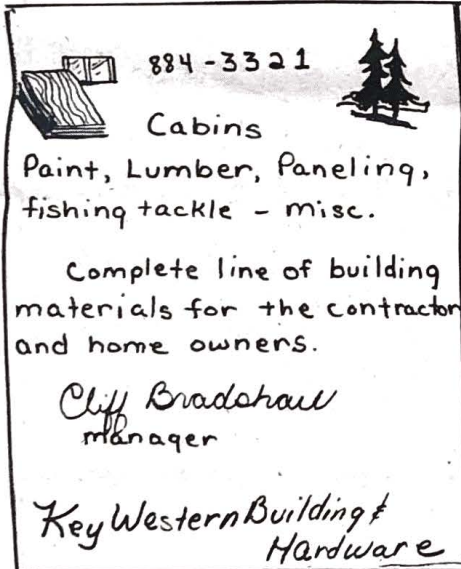 884-3321
Cabins
Paint, Lumber, Paneling,
fishing tackle - misc.
Complete line of building
materials for the contractor
and home owners.
Cliff Bradshaw
manager
Key Western Building &
Hardware